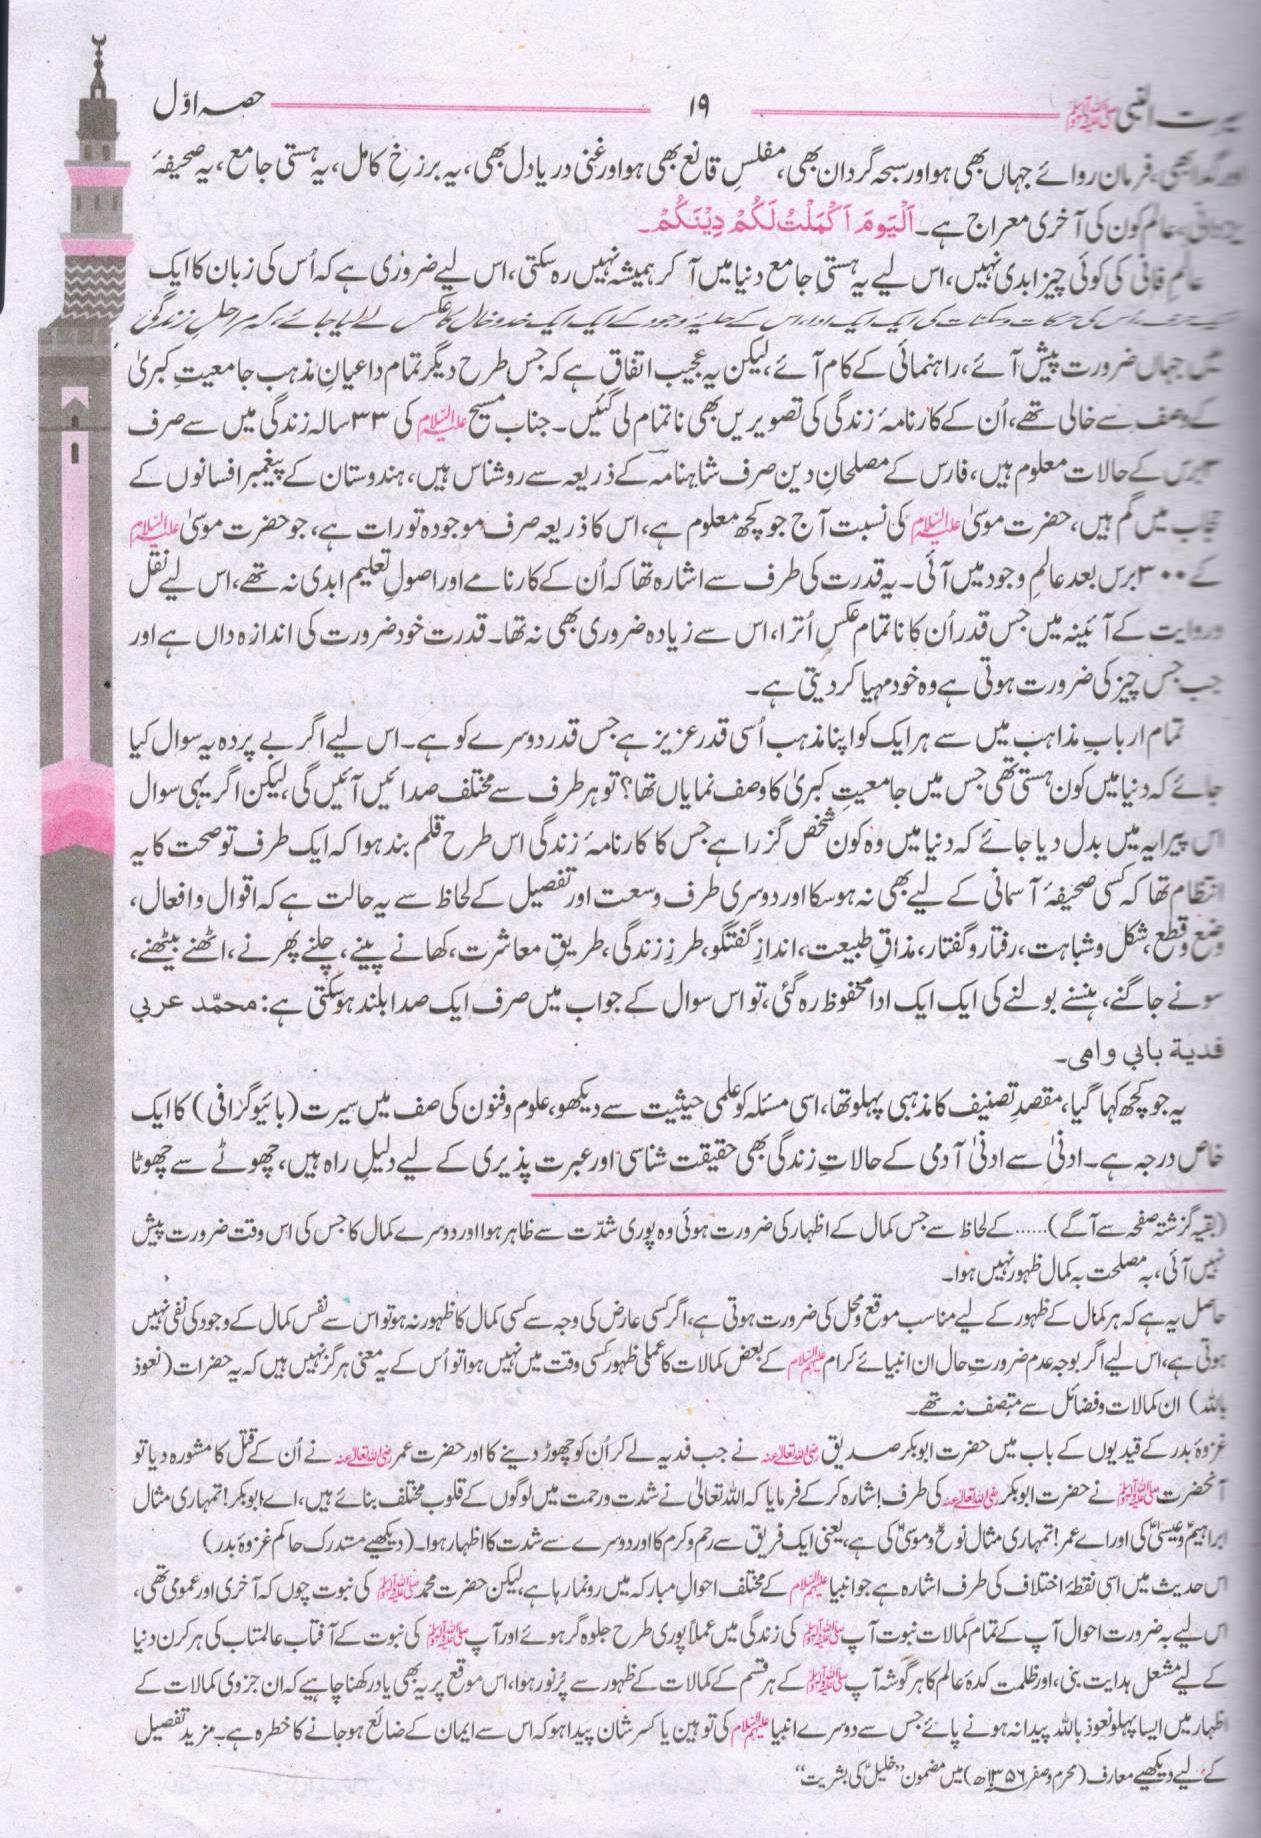 سیرت النبی ﷺ ۱۹ حصہ اوّل
اور گدا بھی، فرمان روائے جہاں بھی ہو اور سبحہ گردان بھی، مفلسِ قانع بھی ہو اور غنی دریا دل بھی، یہ برزخِ کامل، یہ ہستی جامع، یہ صحیفۂ
یزدانی، عالم کون کی آخری معراج ہے۔ اَلْیَومَ اَکْمَلْتُ لَکُمْ دِیْنَکُمْ۔
عالمِ فانی کی کوئی چیز ابدی نہیں، اس لیے یہ ہستیِ جامع دنیا میں آ کر ہمیشہ نہیں رہ سکتی، اس لیے ضروری ہے کہ اُس کی زبان کا ایک
ایک حرف، اُس کی حرکات و سکنات کی ایک ایک ادا، اس کے حلیۂ وجود کے ایک ایک خدوخال کا عکس لے لیا جائے، کہ مراحلِ زندگی
میں جہاں ضرورت پیش آئے، راہنمائی کے کام آئے، لیکن یہ عجیب اتفاق ہے کہ جس طرح دیگر تمام داعیانِ مذہب جامعیتِ کبریٰ
کے وصف سے خالی تھے، اُن کے کارنامۂ زندگی کی تصویریں بھی ناتمام لی گئیں۔ جناب مسیح علیہ السّلام کی ۳۳ سالہ زندگی میں سے صرف
۳ برس کے حالات معلوم ہیں، فارس کے مصلحانِ دین صرف شاہنامہ کے ذریعہ سے روشناس ہیں، ہندوستان کے پیغمبر افسانوں کے
حجاب میں گم ہیں، حضرت موسیٰ علیہ السّلام کی نسبت آج جو کچھ معلوم ہے، اس کا ذریعہ صرف موجودہ تورات ہے، جو حضرت موسیٰ علیہ السّلام
کے ۳۰۰ برس بعد عالمِ وجود میں آئی۔ یہ قدرت کی طرف سے اشارہ تھا کہ اُن کے کارنامے اور اصولِ تعلیم ابدی نہ تھے، اس لیے نقل
و روایت کے آئینہ میں جس قدر اُن کا ناتمام عکس اُترا، اس سے زیادہ ضروری بھی نہ تھا۔ قدرت خود ضرورت کی اندازہ داں ہے اور
جب جس چیز کی ضرورت ہوتی ہے وہ خود مہیا کر دیتی ہے۔
تمام اربابِ مذاہب میں سے ہر ایک کو اپنا مذہب اُسی قدر عزیز ہے جس قدر دوسرے کو ہے۔ اس لیے اگر بے پردہ یہ سوال کیا
جائے کہ دنیا میں کون ہستی تھی جس میں جامعیتِ کبریٰ کا وصف نمایاں تھا؟ تو ہر طرف سے مختلف صدائیں آئیں گی، لیکن اگر یہی سوال
اس پیرایہ میں بدل دیا جائے کہ دنیا میں وہ کون شخص گزرا ہے جس کا کارنامۂ زندگی اس طرح قلم بند ہوا کہ ایک طرف تو صحت کا یہ
انتظام تھا کہ کسی صحیفۂ آسمانی کے لیے بھی نہ ہو سکا اور دوسری طرف وسعت اور تفصیل کے لحاظ سے یہ حالت ہے کہ اقوال و افعال،
وضع و قطع، شکل و شباہت، رفتار و گفتار، مذاقِ طبیعت، اندازِ گفتگو، طرزِ زندگی، طریقِ معاشرت، کھانے پینے، چلنے پھرنے، اٹھنے بیٹھنے،
سونے جاگنے، ہنسنے بولنے کی ایک ایک ادا محفوظ رہ گئی، تو اس سوال کے جواب میں صرف ایک صدا بلند ہو سکتی ہے: محمّد عربي
فدیة بابي و امی۔
یہ جو کچھ کہا گیا، مقصدِ تصنیف کا مذہبی پہلو تھا، اسی مسئلہ کو علمی حیثیت سے دیکھو، علوم و فنون کی صف میں سیرت (بائیوگرافی) کا ایک
خاص درجہ ہے۔ ادنیٰ سے ادنیٰ آدمی کے حالاتِ زندگی بھی حقیقت شناسی اور عبرت پذیری کے لیے دلیلِ راہ ہیں، چھوٹے سے چھوٹا
(بقیہ گزشتہ صفحہ سے آگے)...... کے لحاظ سے جس کمال کے اظہار کی ضرورت ہوئی وہ پوری شدّت سے ظاہر ہوا اور دوسرے کمال کا جس کی اس وقت ضرورت پیش
نہیں آئی، بہ مصلحت بہ کمال ظہور نہیں ہوا۔
حاصل یہ ہے کہ ہر کمال کے ظہور کے لیے مناسب موقع و محل کی ضرورت ہوتی ہے، اگر کسی عارض کی وجہ سے کسی کمال کا ظہور نہ ہو تو اس سے نفس کمال کے وجود کی نفی نہیں
ہوتی ہے، اس لیے اگر بوجہ عدم ضرورتِ حال ان انبیائے کرام علیہم السّلام کے بعض کمالات کا عملی ظہور کسی وقت میں نہیں ہوا تو اُس کے یہ معنی ہرگز نہیں ہیں کہ یہ حضرات (نعوذ
باللہ) ان کمالات و فضائل سے متصف نہ تھے۔
غزوۂ بدر کے قیدیوں کے باب میں حضرت ابوبکر صدیق رضی اللہ تعالیٰ عنہ نے جب فدیہ لے کر اُن کو چھوڑ دینے کا اور حضرت عمر رضی اللہ تعالیٰ عنہ نے اُن کے قتل کا مشورہ دیا تو
آنحضرت ﷺ نے حضرت ابوبکر رضی اللہ تعالیٰ عنہ کی طرف اشارہ کر کے فرمایا کہ اللہ تعالیٰ نے شدت و رحمت میں لوگوں کے قلوب مختلف بنائے ہیں، اے ابوبکر! تمہاری مثال
ابراہیمؑ و عیسیٰؑ کی اور اے عمر! تمہاری مثال نوحؑ و موسیٰؑ کی ہے، یعنی ایک فریق سے رحم و کرم کا اور دوسرے سے شدت کا اظہار ہوا۔ (دیکھیے مستدرک حاکم غزوۂ بدر)
اس حدیث میں اسی نقطۂ اختلاف کی طرف اشارہ ہے جو انبیا علیہم السّلام کے مختلف احوالِ مبارکہ میں رونما رہا ہے، لیکن حضرت محمد ﷺ کی نبوت چوں کہ آخری اور عمومی تھی،
اس لیے بہ ضرورت احوال آپ کے تمام کمالات نبوت آپ ﷺ کی زندگی میں عملاً پوری طرح جلوہ گر ہوئے اور آپ ﷺ کی نبوت کے آفتاب عالمتاب کی ہر کرن دنیا
کے لیے مشعل ہدایت بنی، اور ظلمت کدۂ عالم کا ہر گوشہ آپ ﷺ کے ہر قسم کے کمالات کے ظہور سے پُرنور ہوا، اس موقع پر یہ بھی یاد رکھنا چاہیے کہ ان جزوی کمالات کے
اظہار میں ایسا پہلو نعوذ باللہ پیدا نہ ہونے پائے جس سے دوسرے انبیا علیہم السّلام کی توہین یا کسر شان پیدا ہو کہ اس سے ایمان کے ضائع ہو جانے کا خطرہ ہے۔ مزید تفصیل
کے لیے دیکھیے معارف (محرم و صفر ۱۳۵۶ھ) میں مضمون ”خلیلؑ کی بشریت“